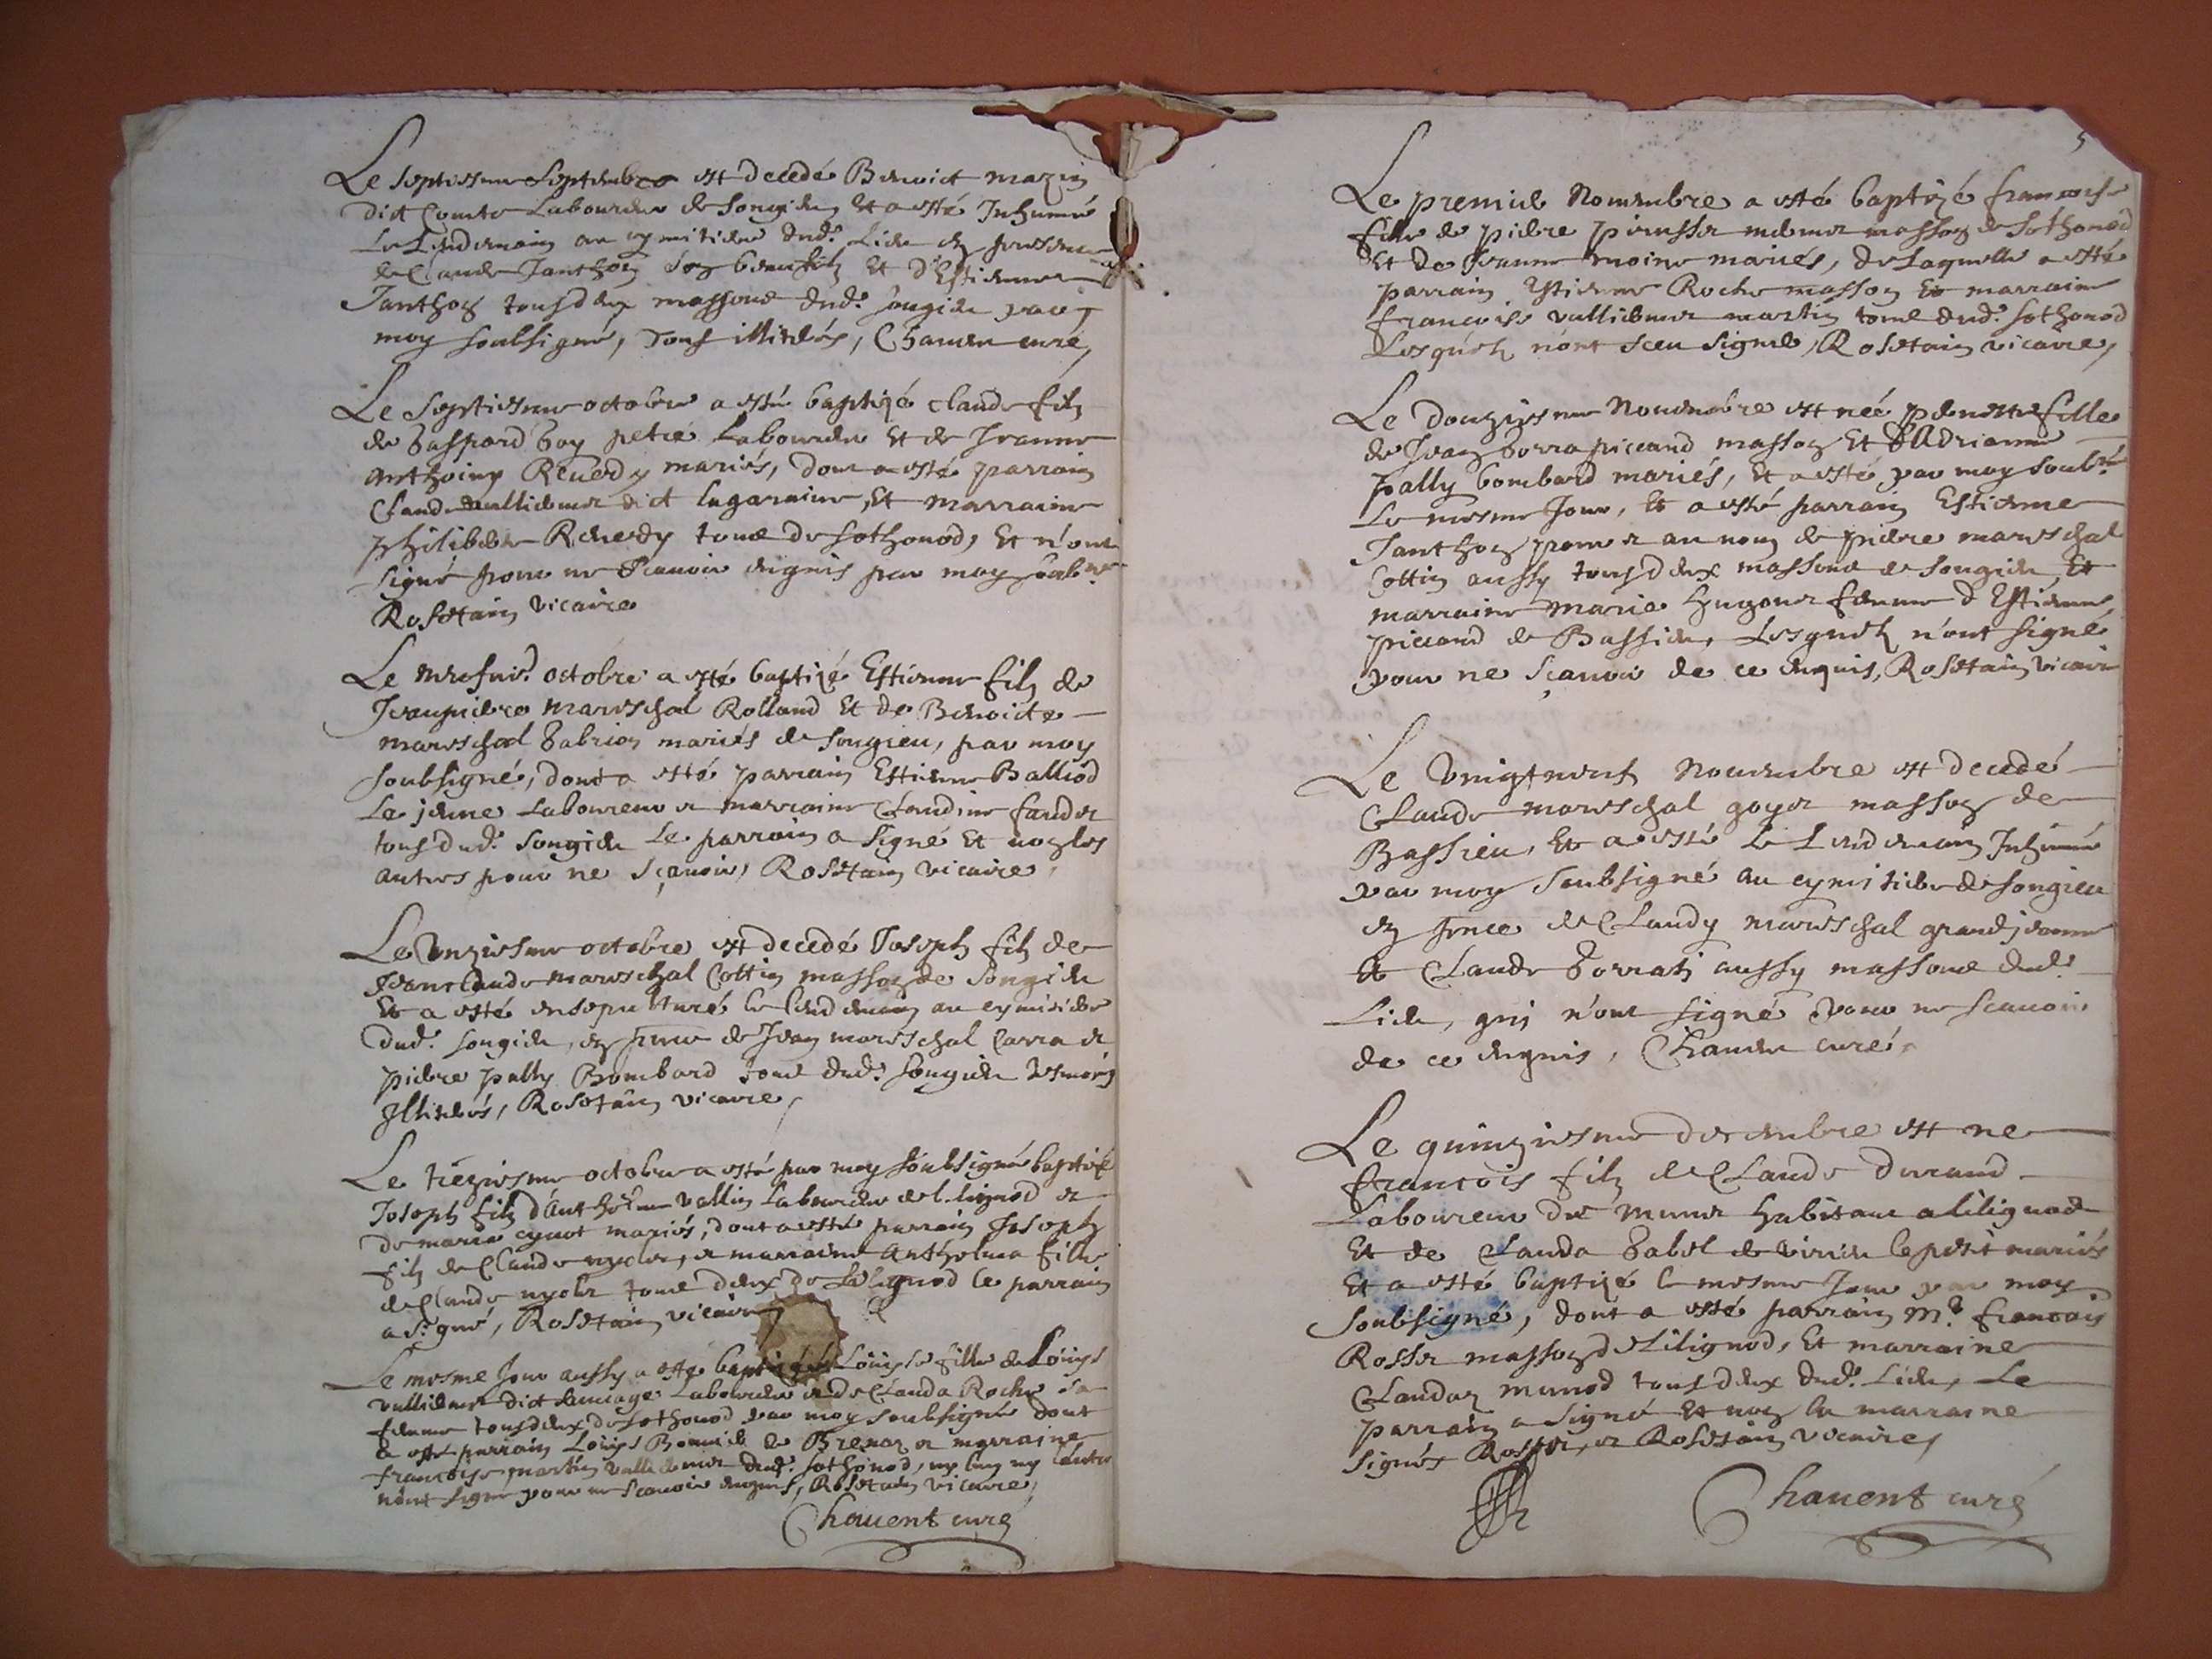 Le septiesme septembre est decedé Benoict mazin
dict Comte Laboureur de songieu et a esté Inhumé
Le Lendemain au cymitiere dud. Lieu en presence
de Claude Janthon son beaufilz et d'Estienne
Janthon tousdeux massons dud. songieu par
moy soubsigné, tous illiterés, Chauen curé,
Le septiesme octobre a esté baptizé claude filz
de Gaspard Goy petie Laboureur et de Jeanne
anthoiny Reuerdy mariés, dont a esté parrain
Claude vulliemoz dict lagaraine, et marraine
philiberte Reuerdy tous de sothonod, et n'ont
signé pour ne scauoir enquis par moy soubné
Rosetain vicaire
Le octobre a esté baptizé Estienne filz de
Jeanpierre mareschal Rolland et de Benoicte
mareschal Gabrion mariés de songieu, par moy
soubsigné, dont a esté parrain Estienne Balliod
Le jeune Laboureur et marraine Claudine
tous dud. songieu Le parrain a signé et non les
autres pour ne sçauoir, Rosetain vicaire,
Le Unziesme octobre est decedé Joseph filz de
Jeanclaude mareschal Cottin masson de songieu
et a esté ensepulturé le lendemain au cymitiere
dud. songieu, en pnce de Jean mareschal Carra et
pierre pally Bombard tous dud. songieu tesmoins
Illiterés, Rosetain vicaire,
Le treziesme octobre a esté par moy soubsigné baptizé
Joseph filz d'Anthelme vallin Laboureur de lilignod et
de maria cynot mariés, dont a esté parrain Joseph
filz de Claude nycolr, et marraine Anthelma fille
de Claude nycolr tous deux de Lilignod le parrain
a signé, Rosetain vicaire
Le mesme Jour aussy a esté baptizée Loüise fille de Loüys
vulliemoz dict sauuage Laboureur et de Clauda Roche sa
femme tousdeux de sothonod par moy soubsigné dont
a esté parrain Loüys de Brenaz et marraine
francoise martin vulliemoz dud. sothonod, ny lun ny lautre
n'ont signé pour ne scauoir enquis, Rosetain vicaire,
Chauent curé
5
Le premier Nouembre a esté baptizé francoise
fille de pierre masson de sothonod
Et de Jeanne moine mariés, de Laquelle a esté
parrain Estienne Roche masson et marraine
francoise vulliemoz martin tous dud. sothonod
Lesquelz n'ont sceu signer, Rosetain vicaire,
Le douziesme Nouembre est neé pernette fille
de Jean Gorra piccand masson Et d'Adrianne
pally bombard mariés, Et a esté par moy soubné
Le mesme Jour, et a esté parrain Estienne
Janthon pour et au nom de pierre mareschal
Cottin aussy tousdeux massons de songieu, et
marraine marie hugonez femme d'Estienne
piccand de Bassieu, Lesquelz n'ont signé
pour ne sçauoir de ce enquis, Rosetain vicaire
Le Vingtneuf Nouembre est decedé
Claude mareschal goyet masson de
Bassieu, et a esté le Lendemain Inhumé
par moy soubsigné au cymitiere de songieu
en pnce de Claudy mareschal grandjeanne
et Claude Gorrati aussy massons dud.
Lieu, qui n'ont signé pour ne scauoir
de ce enquis, Chauen curé,
Le quinziesme decembre est ne
francois filz de Claude durand
Laboureur de habitant a lilignod
Et de Clauda Gabet de virieu le petit mariés
Et a esté baptizé le mesme Jour par moy
soubsigné, dont a esté parrain Me. francois
Rosset masson de Lilignod, Et marraine
Clauda munod tousdeux dud. Lieu, Le
parrain a signé et non la marraine
signés Rosset, et Rosetain vicaire,
Chauent curé